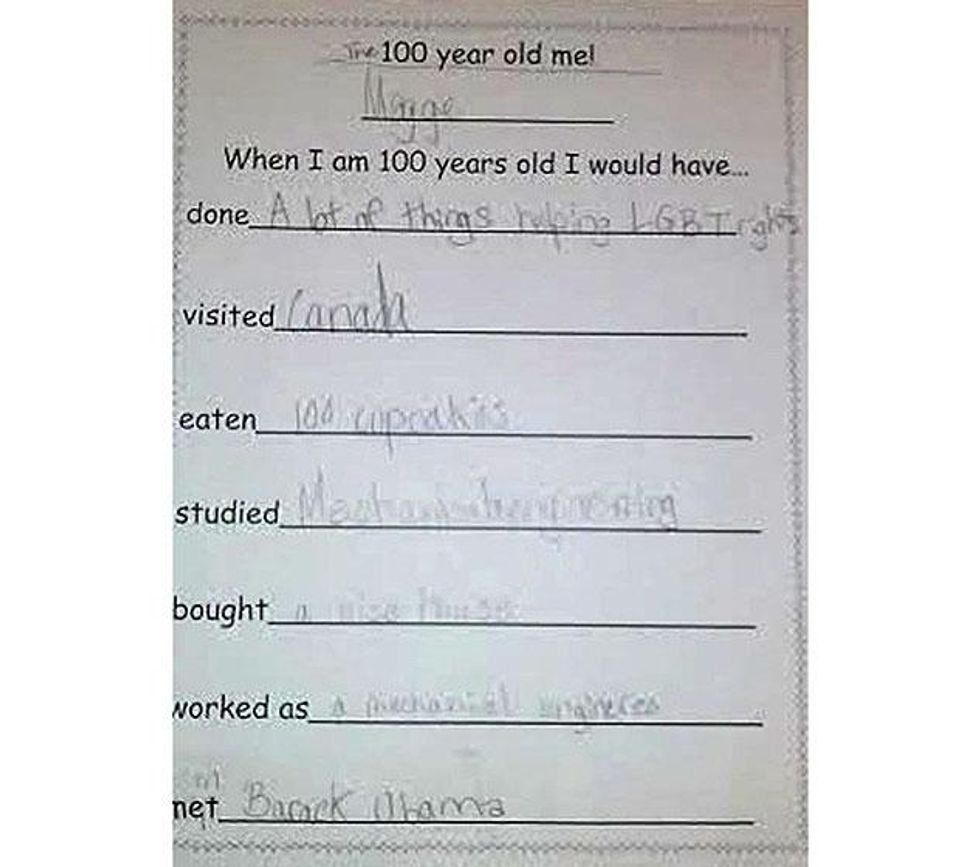 The 100 year old me!
When I am 100 years old I would have...
done A lot of things helping LGBT rights
visited Canada
eaten 100
studied
bought a nice house
worked as a mechanical
met Barack Obama